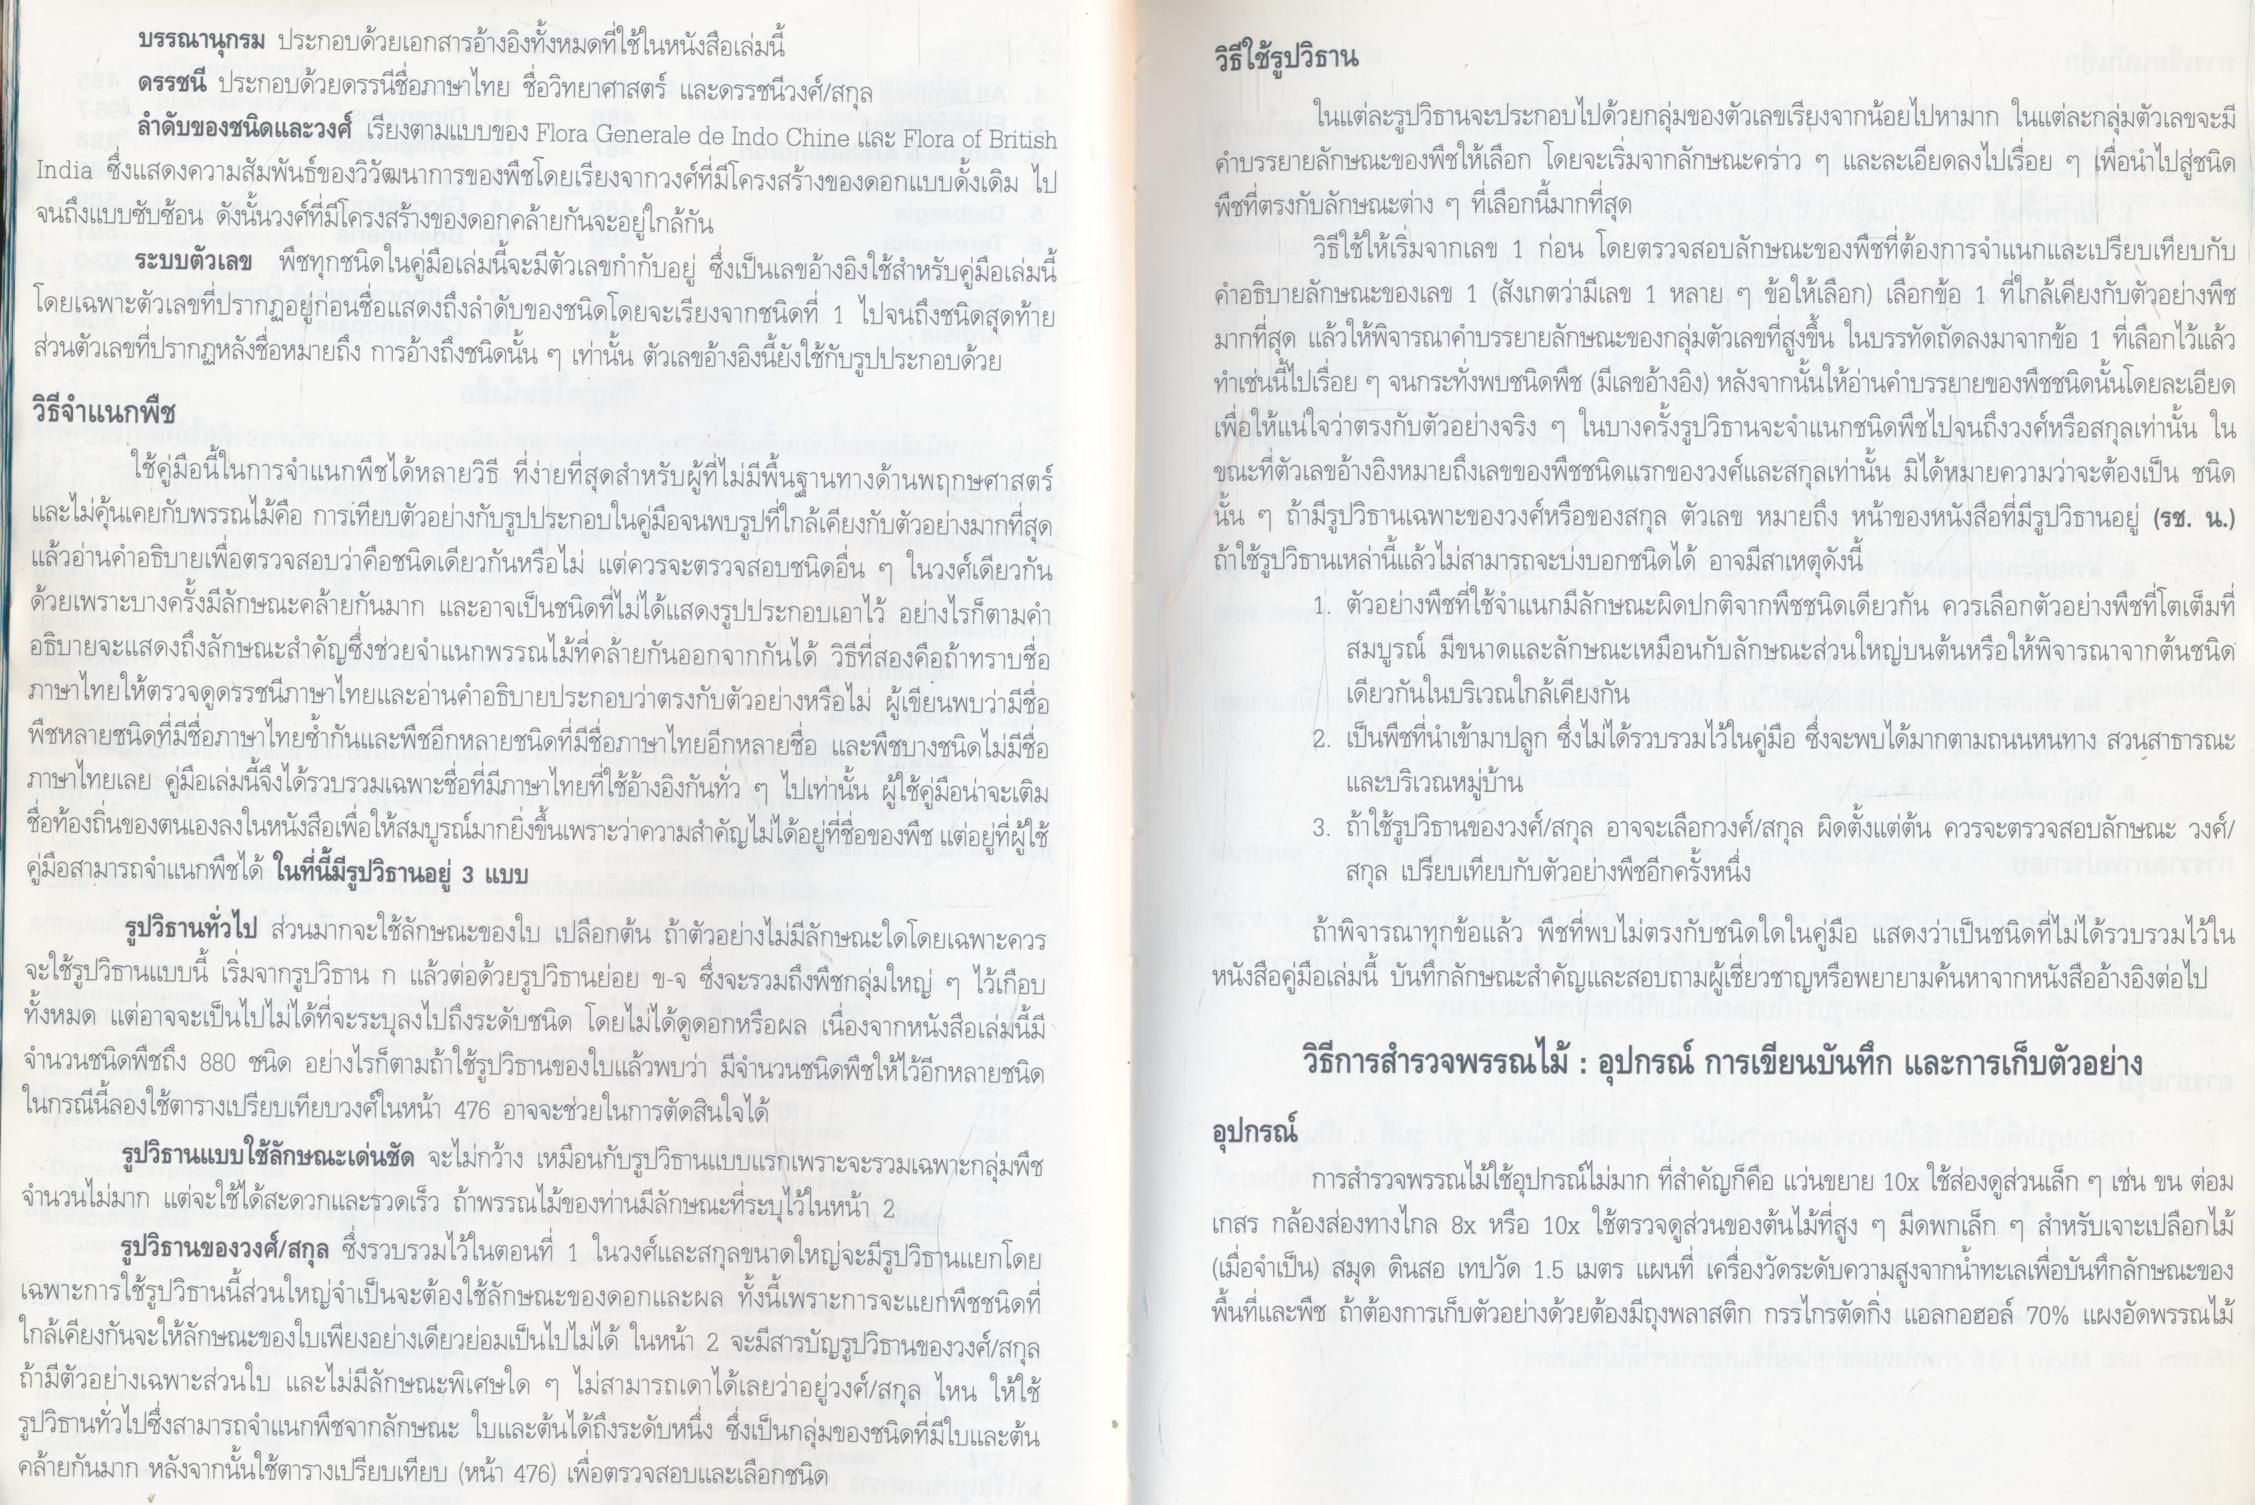 บรรณานุกรม ประกอบด้วยเอกสารอ้างอิงทั้งหมดที่ใช้ในหนังสือเล่มนี้
ดรรชนี ประกอบด้วยดรรนีชื่อภาษาไทย ชื่อวิทยาศาสตร์ และดรรชนีวงศ์/สกุล
ลำดับของชนิดและวงศ์ เรียงตามแบบของ Flora Generale de Indo Chine และ Flora of British
India ซึ่งแสดงความสัมพันธ์ของวิวัฒนาการของพืชโดยเรียงจากวงศ์ที่มีโครงสร้างของดอกแบบดั้งเดิม ไป
จนถึงแบบซับซ้อน ดังนั้นวงศ์ที่มีโครงสร้างของดอกคล้ายกันจะอยู่ใกล้กัน
ระบบตัวเลข พืชทุกชนิดในคู่มือเล่มนี้จะมีตัวเลขกำกับอยู่ ซึ่งเป็นเลขอ้างอิงใช้สำหรับคู่มือเล่มนี้
โดยเฉพาะตัวเลขที่ปรากฏอยู่ก่อนชื่อแสดงถึงลำดับของชนิดโดยจะเรียงจากชนิดที่ 1 ไปจนถึงชนิดสุดท้าย
ส่วนตัวเลขที่ปรากฏหลังชื่อหมายถึง การอ้างถึงชนิดนั้น ๆ เท่านั้น ตัวเลขอ้างอิงนี้ยังใช้กับรูปประกอบด้วย
วิธีจำแนกพืช
ใช้คู่มือนี้ในการจำแนกพืชได้หลายวิธี ที่ง่ายที่สุดสำหรับผู้ที่ไม่มีพื้นฐานทางด้านพฤกษศาสตร์
และไม่คุ้นเคยกับพรรณไม้คือ การเทียบตัวอย่างกับรูปประกอบในคู่มือจนพบรูปที่ใกล้เคียงกับตัวอย่างมากที่สุด
แล้วอ่านคำอธิบายเพื่อตรวจสอบว่าคือชนิดเดียวกันหรือไม่ แต่ควรจะตรวจสอบชนิดอื่น ๆ ในวงศ์เดียวกัน
ด้วยเพราะบางครั้งมีลักษณะคล้ายกันมาก และอาจเป็นชนิดที่ไม่ได้แสดงรูปประกอบเอาไว้ อย่างไรก็ตามคำ
อธิบายจะแสดงถึงลักษณะสำคัญซึ่งช่วยจำแนกพรรณไม้ที่คล้ายกันออกจากกันได้ วิธีที่สองคือถ้าทราบชื่อ
ภาษาไทยให้ตรวจดูดรรชนีภาษาไทยและอ่านคำอธิบายประกอบว่าตรงกับตัวอย่างหรือไม่ ผู้เขียนพบว่ามีชื่อ
พืชหลายชนิดที่มีชื่อภาษาไทยซ้ำกันและพืชอีกหลายชนิดที่มีชื่อภาษาไทยอีกหลายชื่อ และพืชบางชนิดไม่มีชื่อ
ภาษาไทยเลย คู่มือเล่มนี้จึงได้รวบรวมเฉพาะชื่อที่มีภาษาไทยที่ใช้อ้างอิงกันทั่ว ๆ ไปเท่านั้น ผู้ใช้คู่มือน่าจะเติม
ชื่อท้องถิ่นของตนเองลงในหนังสือเพื่อให้สมบูรณ์มากยิ่งขึ้นเพราะว่าความสำคัญไม่ได้อยู่ที่ชื่อของพืช แต่อยู่ที่ผู้ใช้
คู่มือสามารถจำแนกพืชได้ ในที่นี้มีรูปวิธานอยู่ 3 แบบ
รูปวิธานทั่วไป ส่วนมากจะใช้ลักษณะของใบ เปลือกต้น ถ้าตัวอย่างไม่มีลักษณะใดโดยเฉพาะควร
จะใช้รูปวิธานแบบนี้ เริ่มจากรูปวิธาน ก แล้วต่อด้วยรูปวิธานย่อย ข-จ ซึ่งจะรวมถึงพืชกลุ่มใหญ่ ๆ ไว้เกือบ
ทั้งหมด แต่อาจจะเป็นไปไม่ได้ที่จะระบุลงไปถึงระดับชนิด โดยไม่ได้ดูดอกหรือผล เนื่องจากหนังสือเล่มนี้มี
จำนวนชนิดพืชถึง 880 ชนิด อย่างไรก็ตามถ้าใช้รูปวิธานของใบแล้วพบว่า มีจำนวนชนิดพืชให้ไว้อีกหลายชนิด
ในกรณีนี้ลองใช้ตารางเปรียบเทียบวงศ์ในหน้า 476 อาจจะช่วยในการตัดสินใจได้
รูปวิธานแบบใช้ลักษณะเด่นชัด จะไม่กว้าง เหมือนกับรูปวิธานแบบแรกเพราะจะรวมเฉพาะกลุ่มพืช
จำนวนไม่มาก แต่จะใช้ได้สะดวกและรวดเร็ว ถ้าพรรณไม้ของท่านมีลักษณะที่ระบุไว้ในหน้า 2
รูปวิธานของวงศ์/สกุล ซึ่งรวบรวมไว้ในตอนที่ 1 ในวงศ์และสกุลขนาดใหญ่จะมีรูปวิธานแยกโดย
เฉพาะการใช้รูปวิธานนี้ส่วนใหญ่จำเป็นจะต้องใช้ลักษณะของดอกและผล ทั้งนี้เพราะการจะแยกพืชชนิดที่
ใกล้เคียงกันจะให้ลักษณะของใบเพียงอย่างเดียวย่อมเป็นไปไม่ได้ ในหน้า 2 จะมีสารบัญรูปวิธานของวงศ์/สกุล
ถ้ามีตัวอย่างเฉพาะส่วนใบ และไม่มีลักษณะพิเศษใด ๆ ไม่สามารถเดาได้เลยว่าอยู่วงศ์/สกุล ไหน ให้ใช้
รูปวิธานทั่วไปซึ่งสามารถจำแนกพืชจากลักษณะ ใบและต้นได้ถึงระดับหนึ่ง ซึ่งเป็นกลุ่มของชนิดที่มีใบและต้น
คล้ายกันมาก หลังจากนั้นใช้ตารางเปรียบเทียบ (หน้า 476) เพื่อตรวจสอบและเลือกชนิด
วิธีใช้รูปวิธาน
ในแต่ละรูปวิธานจะประกอบไปด้วยกลุ่มของตัวเลขเรียงจากน้อยไปหามาก ในแต่ละกลุ่มตัวเลขจะมี
คำบรรยายลักษณะของพืชให้เลือก โดยจะเริ่มจากลักษณะคร่าว ๆ และละเอียดลงไปเรื่อย ๆ เพื่อนำไปสู่ชนิด
พืชที่ตรงกับลักษณะต่าง ๆ ที่เลือกนี้มากที่สุด
วิธีใช้ให้เริ่มจากเลข 1 ก่อน โดยตรวจสอบลักษณะของพืชที่ต้องการจำแนกและเปรียบเทียบกับ
คำอธิบายลักษณะของเลข 1 (สังเกตว่ามีเลข 1 หลาย ๆ ข้อให้เลือก) เลือกข้อ 1 ที่ใกล้เคียงกับตัวอย่างพืช
มากที่สุด แล้วให้พิจารณาคำบรรยายลักษณะของกลุ่มตัวเลขที่สูงขึ้น ในบรรทัดถัดลงมาจากข้อ 1 ที่เลือกไว้แล้ว
ทำเช่นนี้ไปเรื่อย ๆ จนกระทั่งพบชนิดพืช (มีเลขอ้างอิง) หลังจากนั้นให้อ่านคำบรรยายของพืชชนิดนั้นโดยละเอียด
เพื่อให้แน่ใจว่าตรงกับตัวอย่างจริง ๆ ในบางครั้งรูปวิธานจะจำแนกชนิดพืชไปจนถึงวงศ์หรือสกุลเท่านั้น ใน
ขณะที่ตัวเลขอ้างอิงหมายถึงเลขของพืชชนิดแรกของวงศ์และสกุลเท่านั้น มิได้หมายความว่าจะต้องเป็น ชนิด
นั้น ๆ ถ้ามีรูปวิธานเฉพาะของวงศ์หรือของสกุล ตัวเลข หมายถึง หน้าของหนังสือที่มีรูปวิธานอยู่ (รช. น.)
ถ้าใช้รูปวิธานเหล่านี้แล้วไม่สามารถจะบ่งบอกชนิดได้ อาจมีสาเหตุดังนี้
1. ตัวอย่างพืชที่ใช้จำแนกมีลักษณะผิดปกติจากพืชชนิดเดียวกัน ควรเลือกตัวอย่างพืชที่โตเต็มที่
สมบูรณ์ มีขนาดและลักษณะเหมือนกับลักษณะส่วนใหญ่บนต้นหรือให้พิจารณาจากต้นชนิด
เดียวกันในบริเวณใกล้เคียงกัน
2. เป็นพืชที่นำเข้ามาปลูก ซึ่งไม่ได้รวบรวมไว้ในคู่มือ ซึ่งจะพบได้มากตามถนนหนทาง สวนสาธารณะ
และบริเวณหมู่บ้าน
3. ถ้าใช้รูปวิธานของวงศ์/สกุล อาจจะเลือกวงศ์/สกุล ผิดตั้งแต่ต้น ควรจะตรวจสอบลักษณะ วงศ์/
สกุล เปรียบเทียบกับตัวอย่างพืชอีกครั้งหนึ่ง
ถ้าพิจารณาทุกข้อแล้ว พืชที่พบไม่ตรงกับชนิดใดในคู่มือ แสดงว่าเป็นชนิดที่ไม่ได้รวบรวมไว้ใน
หนังสือคู่มือเล่มนี้ บันทึกลักษณะสำคัญและสอบถามผู้เชี่ยวชาญหรือพยายามค้นหาจากหนังสืออ้างอิงต่อไป
วิธีการสำรวจพรรณไม้ : อุปกรณ์ การเขียนบันทึก และการเก็บตัวอย่าง
อุปกรณ์
การสำรวจพรรณไม้ใช้อุปกรณ์ไม่มาก ที่สำคัญก็คือ แว่นขยาย 10x ใช้ส่องดูส่วนเล็ก ๆ เช่น ขน ต่อม
เกสร กล้องส่องทางไกล 8x หรือ 10x ใช้ตรวจดูส่วนของต้นไม้ที่สูง ๆ มีดพกเล็ก ๆ สำหรับเจาะเปลือกไม้
(เมื่อจำเป็น) สมุด ดินสอ เทปวัด 1.5 เมตร แผนที่ เครื่องวัดระดับความสูงจากน้ำทะเลเพื่อบันทึกลักษณะของ
พื้นที่และพืช ถ้าต้องการเก็บตัวอย่างด้วยต้องมีถุงพลาสติก กรรไกรตัดกิ่ง แอลกอฮอล์ 70% แผงอัดพรรณไม้